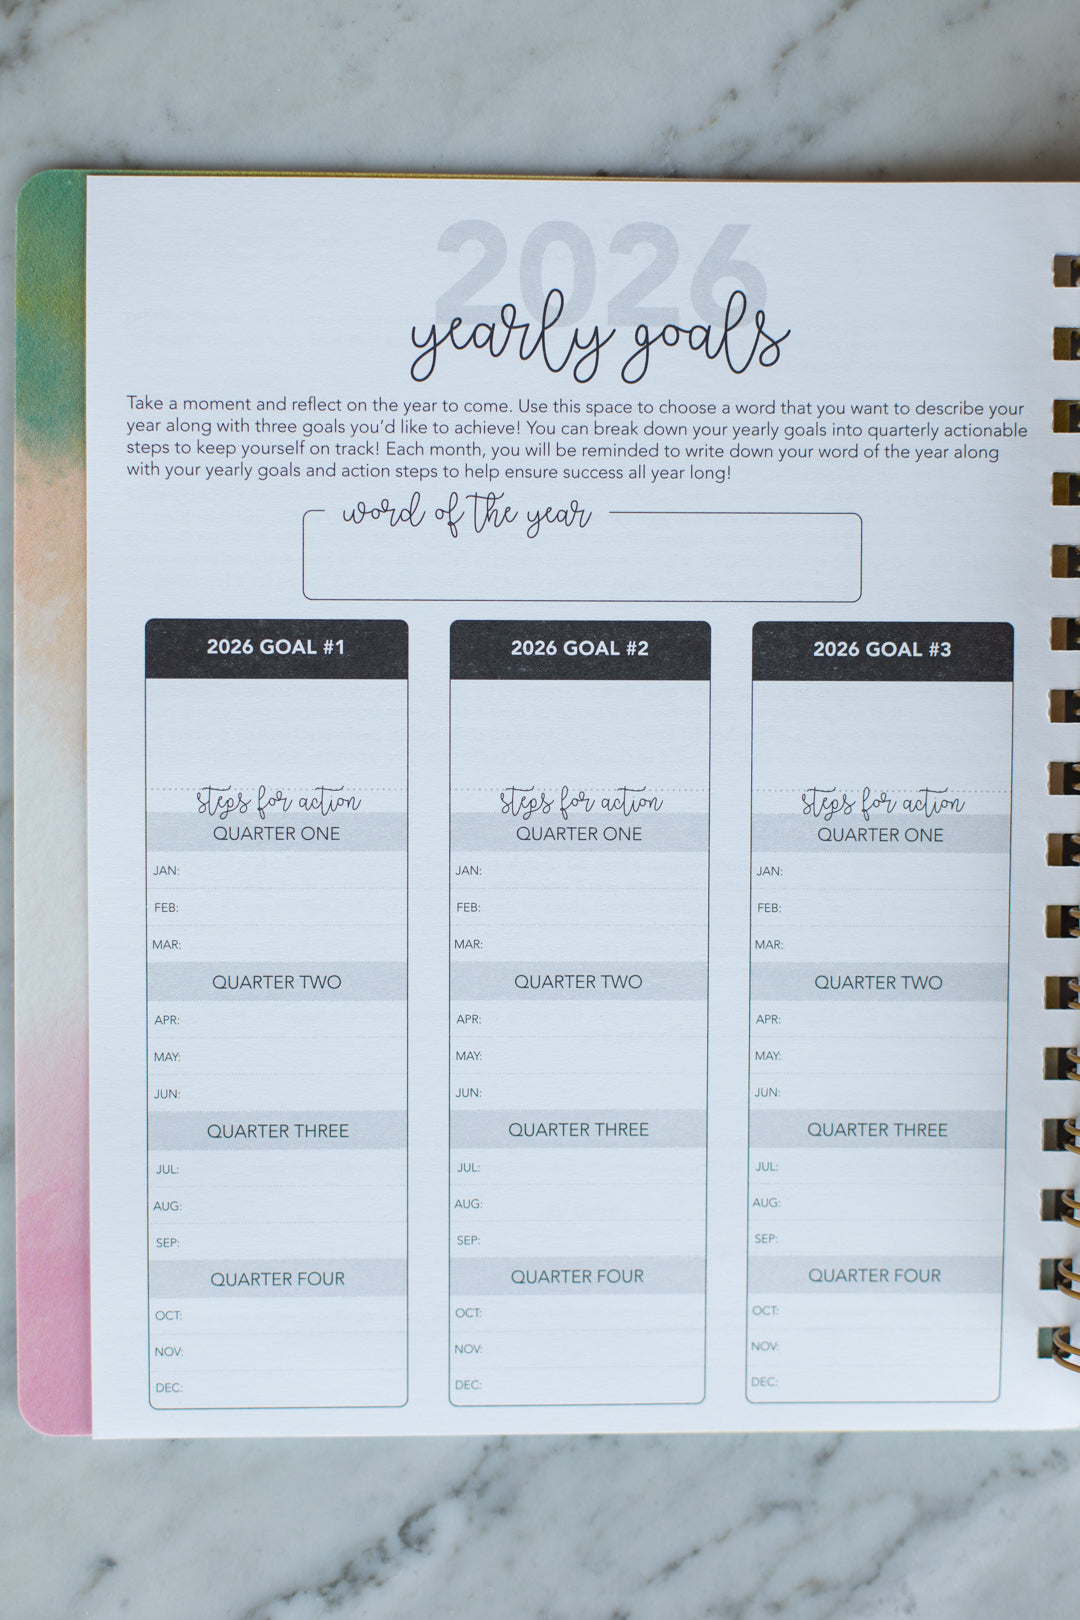 2026
yearly goals
Take a moment and reflect on the year to come. Use this space to choose a word that you want to describe your
year along with three goals you'd like to achieve! You can break down your yearly goals into quarterly actionable
steps to keep yourself on track! Each month, you will be reminded to write down your word of the year along
with your yearly goals and action steps to help ensure success all year long!
word of the year
2026 GOAL #1
steps for action
QUARTER ONE
JAN:
FEB:
MAR:
QUARTER TWO
APR:
MAY:
JUN:
QUARTER THREE
JUL:
AUG:
SEP:
QUARTER FOUR
OCT:
NOV:
DEC:
2026 GOAL #2
steps for action
QUARTER ONE
JAN:
FEB:
MAR:
QUARTER TWO
APR:
MAY:
JUN:
QUARTER THREE
JUL:
AUG:
SEP:
QUARTER FOUR
OCT:
NOV:
DEC:
2026 GOAL #3
steps for action
QUARTER ONE
JAN:
FEB:
MAR:
QUARTER TWO
APR:
MAY:
JUN:
QUARTER THREE
JUL:
AUG:
SEP:
QUARTER FOUR
OCT:
NOV:
DEC: